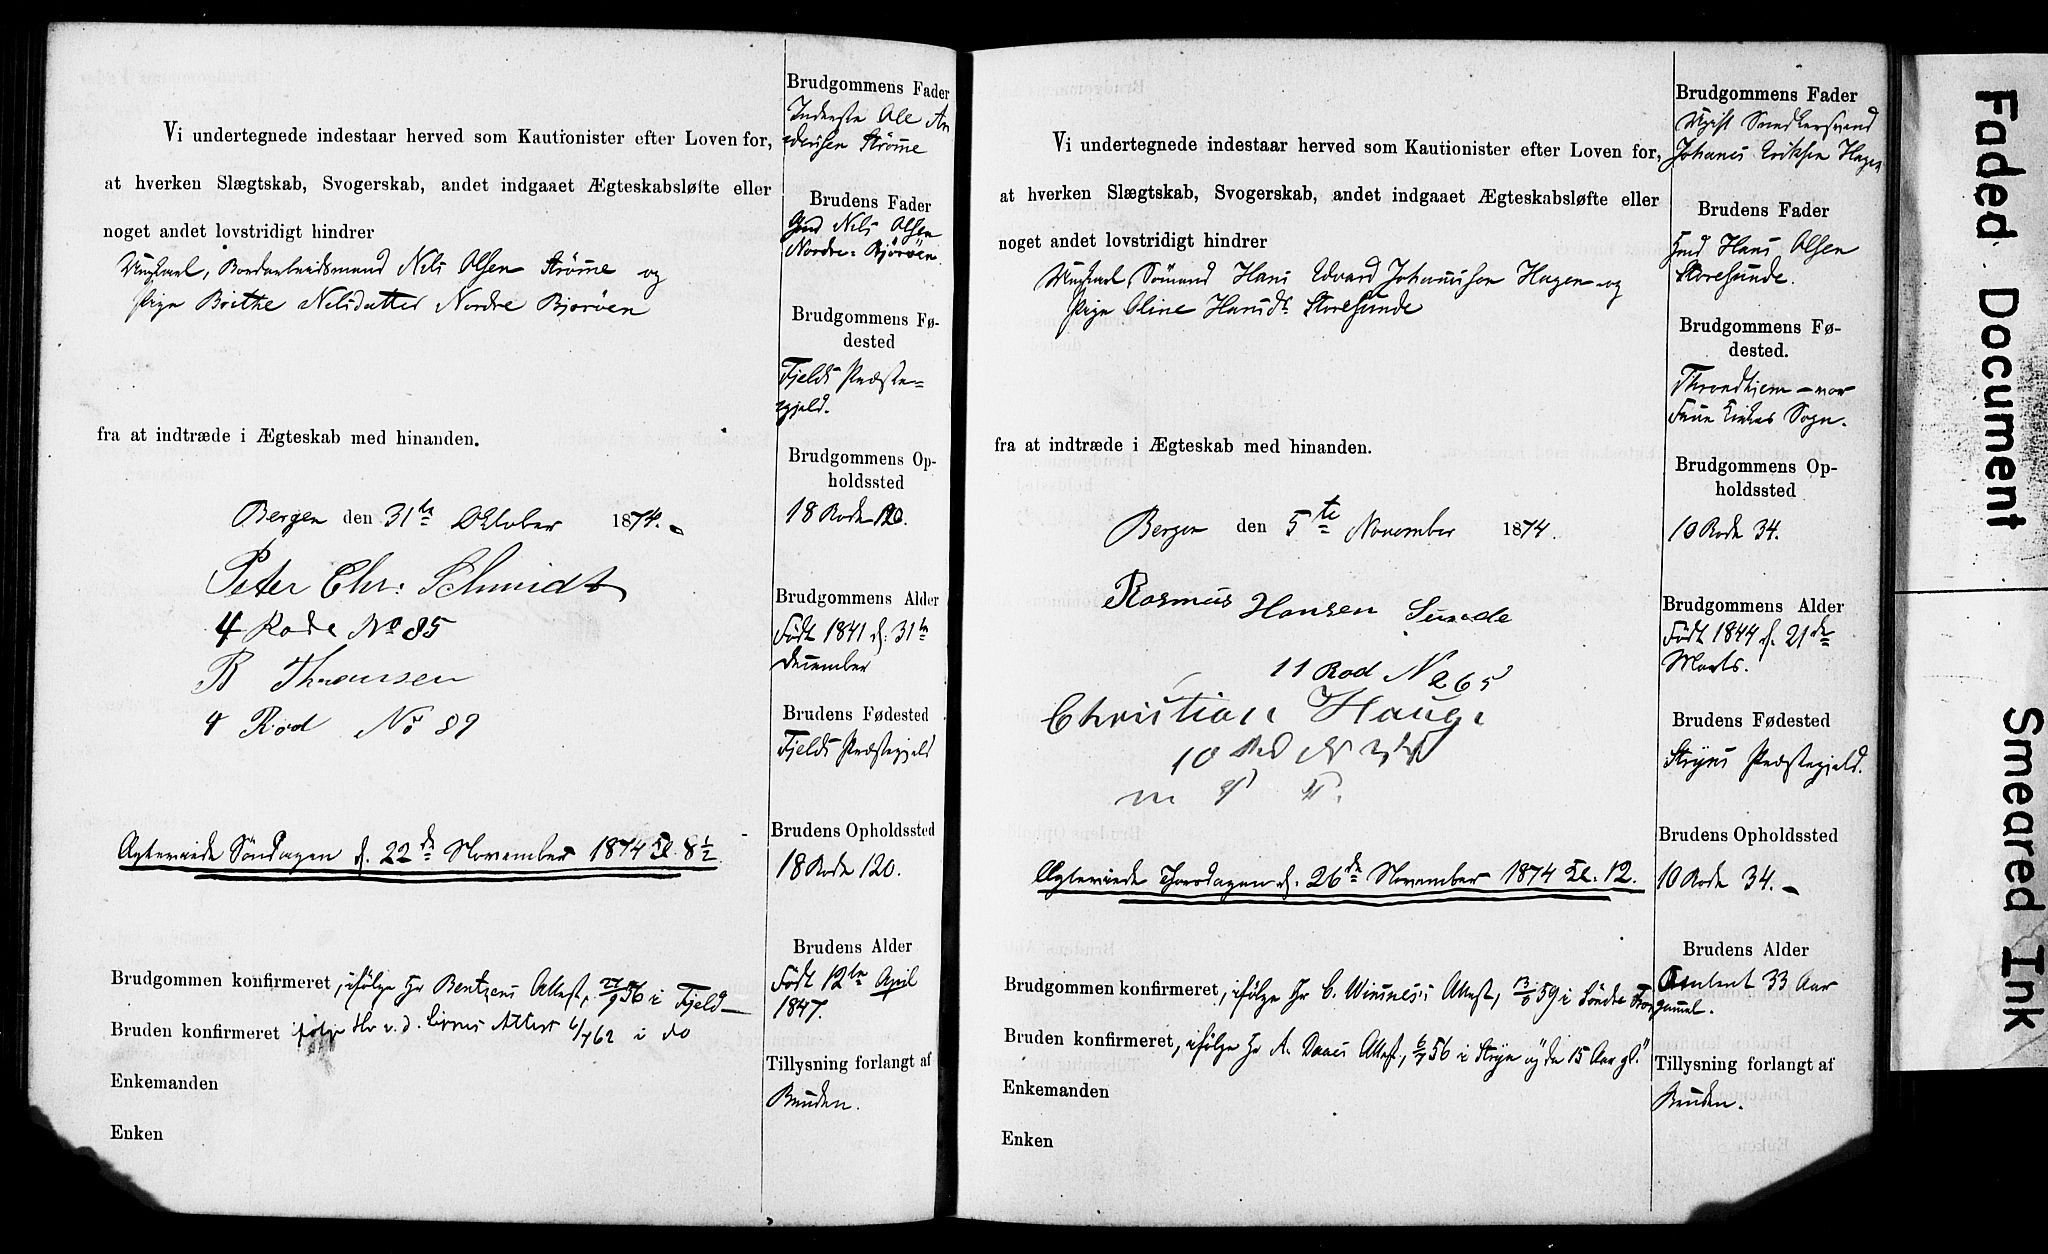 Vi undertegnede indestaar herved som Kautionister efter Loven for,
at hverken Slægtskab, Svogerskab, andet indgaaet Ægteskabsløfte eller
noget andet lovstridigt hindrer
Ungkarl, Bordarbeidsmand Nils Olsen Strømme og
Pige Brithe Nilsdatter Nordre Bjorøen
fra at indtræde i Ægteskab med hinanden.
Bergen den 31te Oktober 1874.
Peter Chr: Schmidt
4 Rode No 85
B Thomsen
4 Rod No 89
Ægteviede Søndagen d. 22de November 1874 Kl. 8 1/2.
Brudgommen konfirmeret, ifølge Hr Bentzens Attest, 56 i Fjeld
Bruden konfirmeret ifølge Hr v. d. Attest 6/7 62 i do
Enkemanden
Enken
Brudgommens Fader
Inderste Ole An
dersen Strømme
Brudens Fader
Gmd Nils Olsen
Nordre-Bjorøen.
Brudgommens Fø-
dested
Fjelds Præste-
gjeld.
Brudgommens Op-
holdssted
18 Rode 120.
Brudgommens Alder
Født 1841 d. 31te
December
Brudens Fødested
Fjelds Præstegjeld
Brudens Opholdssted
18 Rode 120.
Brudens Alder
Født 12te April
1847.
Tillysning forlangt af
Bruden.
Vi undertegnede indestaar herved som Kautionister efter Loven for,
at hverken Slægtskab, Svogerskab, andet indgaaet Ægteskabsløfte eller
noget andet lovstridigt hindrer
Ungkarl, Sømand Hans Edvard Johannessen Hagen og
Pige Oline Hansdr Storesunde
fra at indtræde i Ægteskab med hinanden.
Bergen den 5te November 1874.
Rasmus Hansen Sunde
11 Rod No 265
Christian Hauge
10 Rod No
m. P.
Ægteviede Thorsdagen d. 26de November 1874 Kl. 12.
Brudgommen konfirmeret, ifølge Hr C. Attest, 59 i Søndre
Bruden konfirmeret, ifølge Hr A. Daaes Attest, 6/7 56 i Stryn og "da 15 Aar gl."
Enkemanden
Enken
Brudgommens Fader
Ugift Snedkersvend
Johanes Eriksen Hagen
Brudens Fader
Gmd Hans Olsen
Storesunde.
Brudgommens Fø-
dested.
Throndhjem - vor
Frue Kirkes Sogn.
Brudgommens Op-
holdssted
10 Rode 34.
Brudgommens Alder
Født 1844 d. 21de
Marts.
Brudens Fødested
Stryns Præstegjeld.
Brudens Opholdssted
10 Rode 34.
Brudens Alder
Omtrent 33 Aar
gammel.
Tillysning forlangt af
Bruden.
Faded Document
Smeared Ink